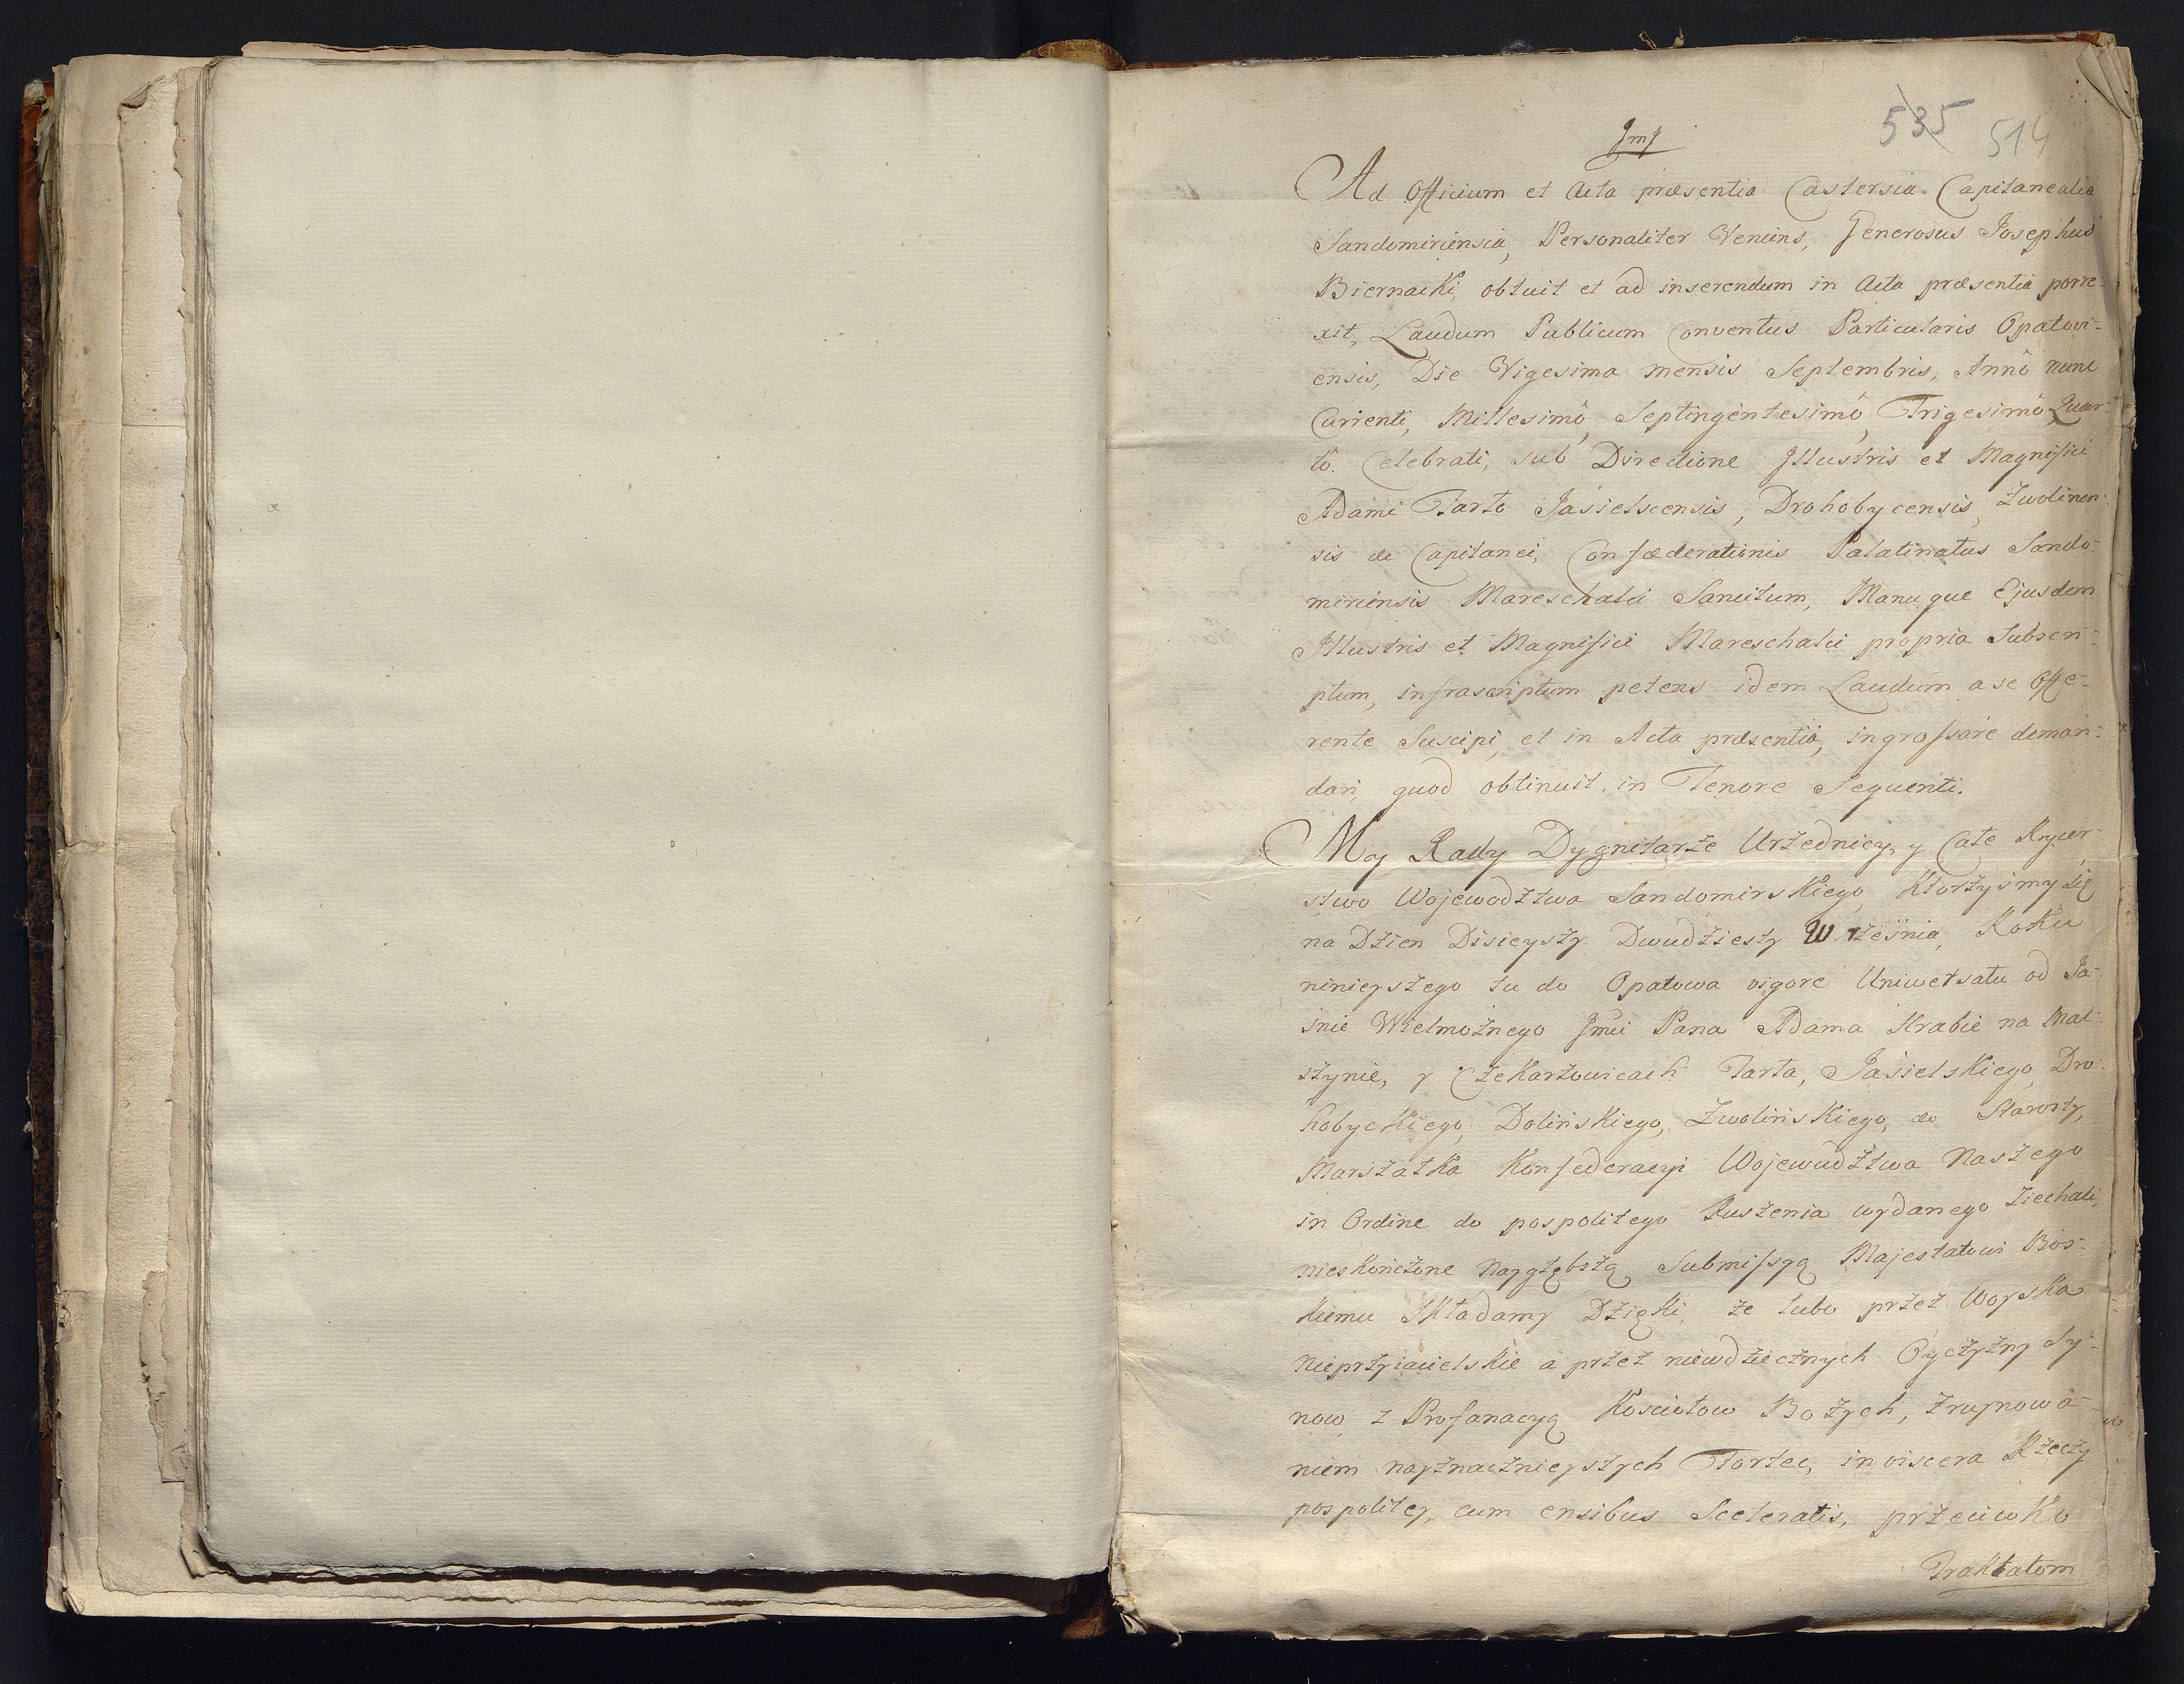 535 514
JmJ
Ad Officium et Acta præsentia Castersia Capitanealia
Sandomiriensia, Personaliter Veniens, Generosus Josephus
Biernacki, obtuit et ad inserendum in Acta præsentia porre-
xit, Laudum Publicum Conventus Particularis Opatovi-
ensis, Die Vigesima mensis Septembris, Annô nunc
Currenti, Millesimô, Septingentesimô, Trigesimô Quar-
tô. Celebrati, sub Directione Jllustris et Magnifici
Adami Tarło Jasielscensis, Drohobycensis, Zwolinen-
sis &c Capitanei, Confæderationis Palatinatus Sando-
miriensis Mareschalci Sancitum, Manuque Ejusdem
Jllustris et Magnifici Mareschalci propria Subscri-
ptum, infrascriptum petens idem Laudum a se Offe-
rente Suscipi, et in Acta præsentia, ingrossare deman-
dari, quod obtinuit in Tenore Sequenti.
My Rady Dygnitarze Urzednicy, y Całe Rycer-
stwo Wojewodztwa Sandomirskiego, Ktorzysmy się
na Dzien Disieyszy Dwudziesty Wrzesnia, Roku
ninieyszego tu do Opatowa vigore Uniwersału od Ja-
snie Wielmoznego Jmci Pana Adama Hrabie na Mel-
sztynie, y Czekarzowicach Tarła, Jasielskiego, Dro-
hobyckiego, Dolińskiego, Zwolińskiego, &c Starosty,
Marszałka Konfederacyi Wojewudztwa Naszego
in Ordine do pospolitego Ruszenia wydanego Ziechali,
nieskończone Naygłębszą Submissyą Majestatowi Bos-
kiemu Składamy Dzięki, ze lubo przez Woyska
Nieprzyiacielskie a przez niewdziecznych Oyczyzny Sy-
now, z Profanacyą Kosciołow Bozych, Zruynowa-
niem nayznacznieyszych Fortec, in viscera Rzeczy
pospolitey, cum ensibus Sceleratis, przeciwko
Traktatom